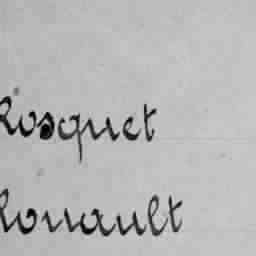 Rosquet
Rouault